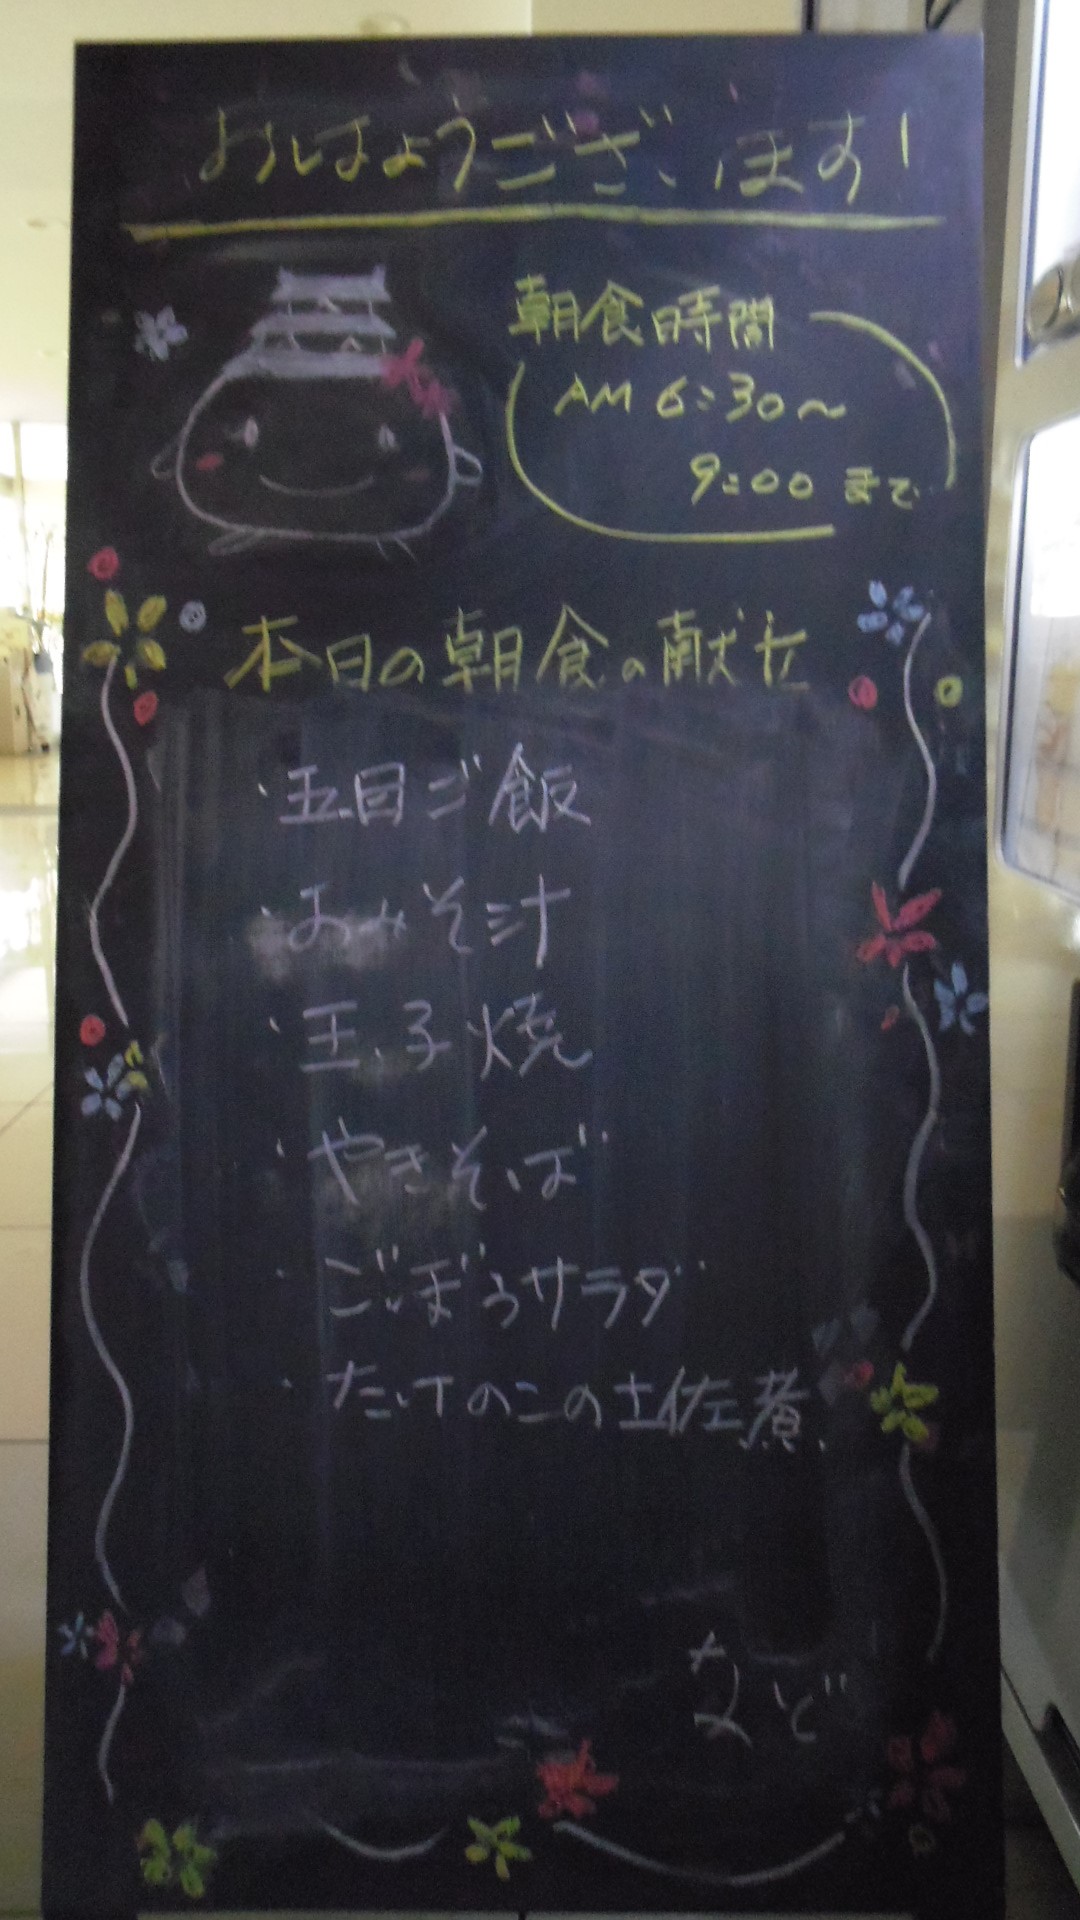 おはようございます!
朝食時間
AM 6:30〜
9:00 まで
本日の朝食の献立
・五目ご飯
・おみそ汁
・玉子焼
・やきそば
・ごぼうサラダ
・たけのこの土佐煮
など